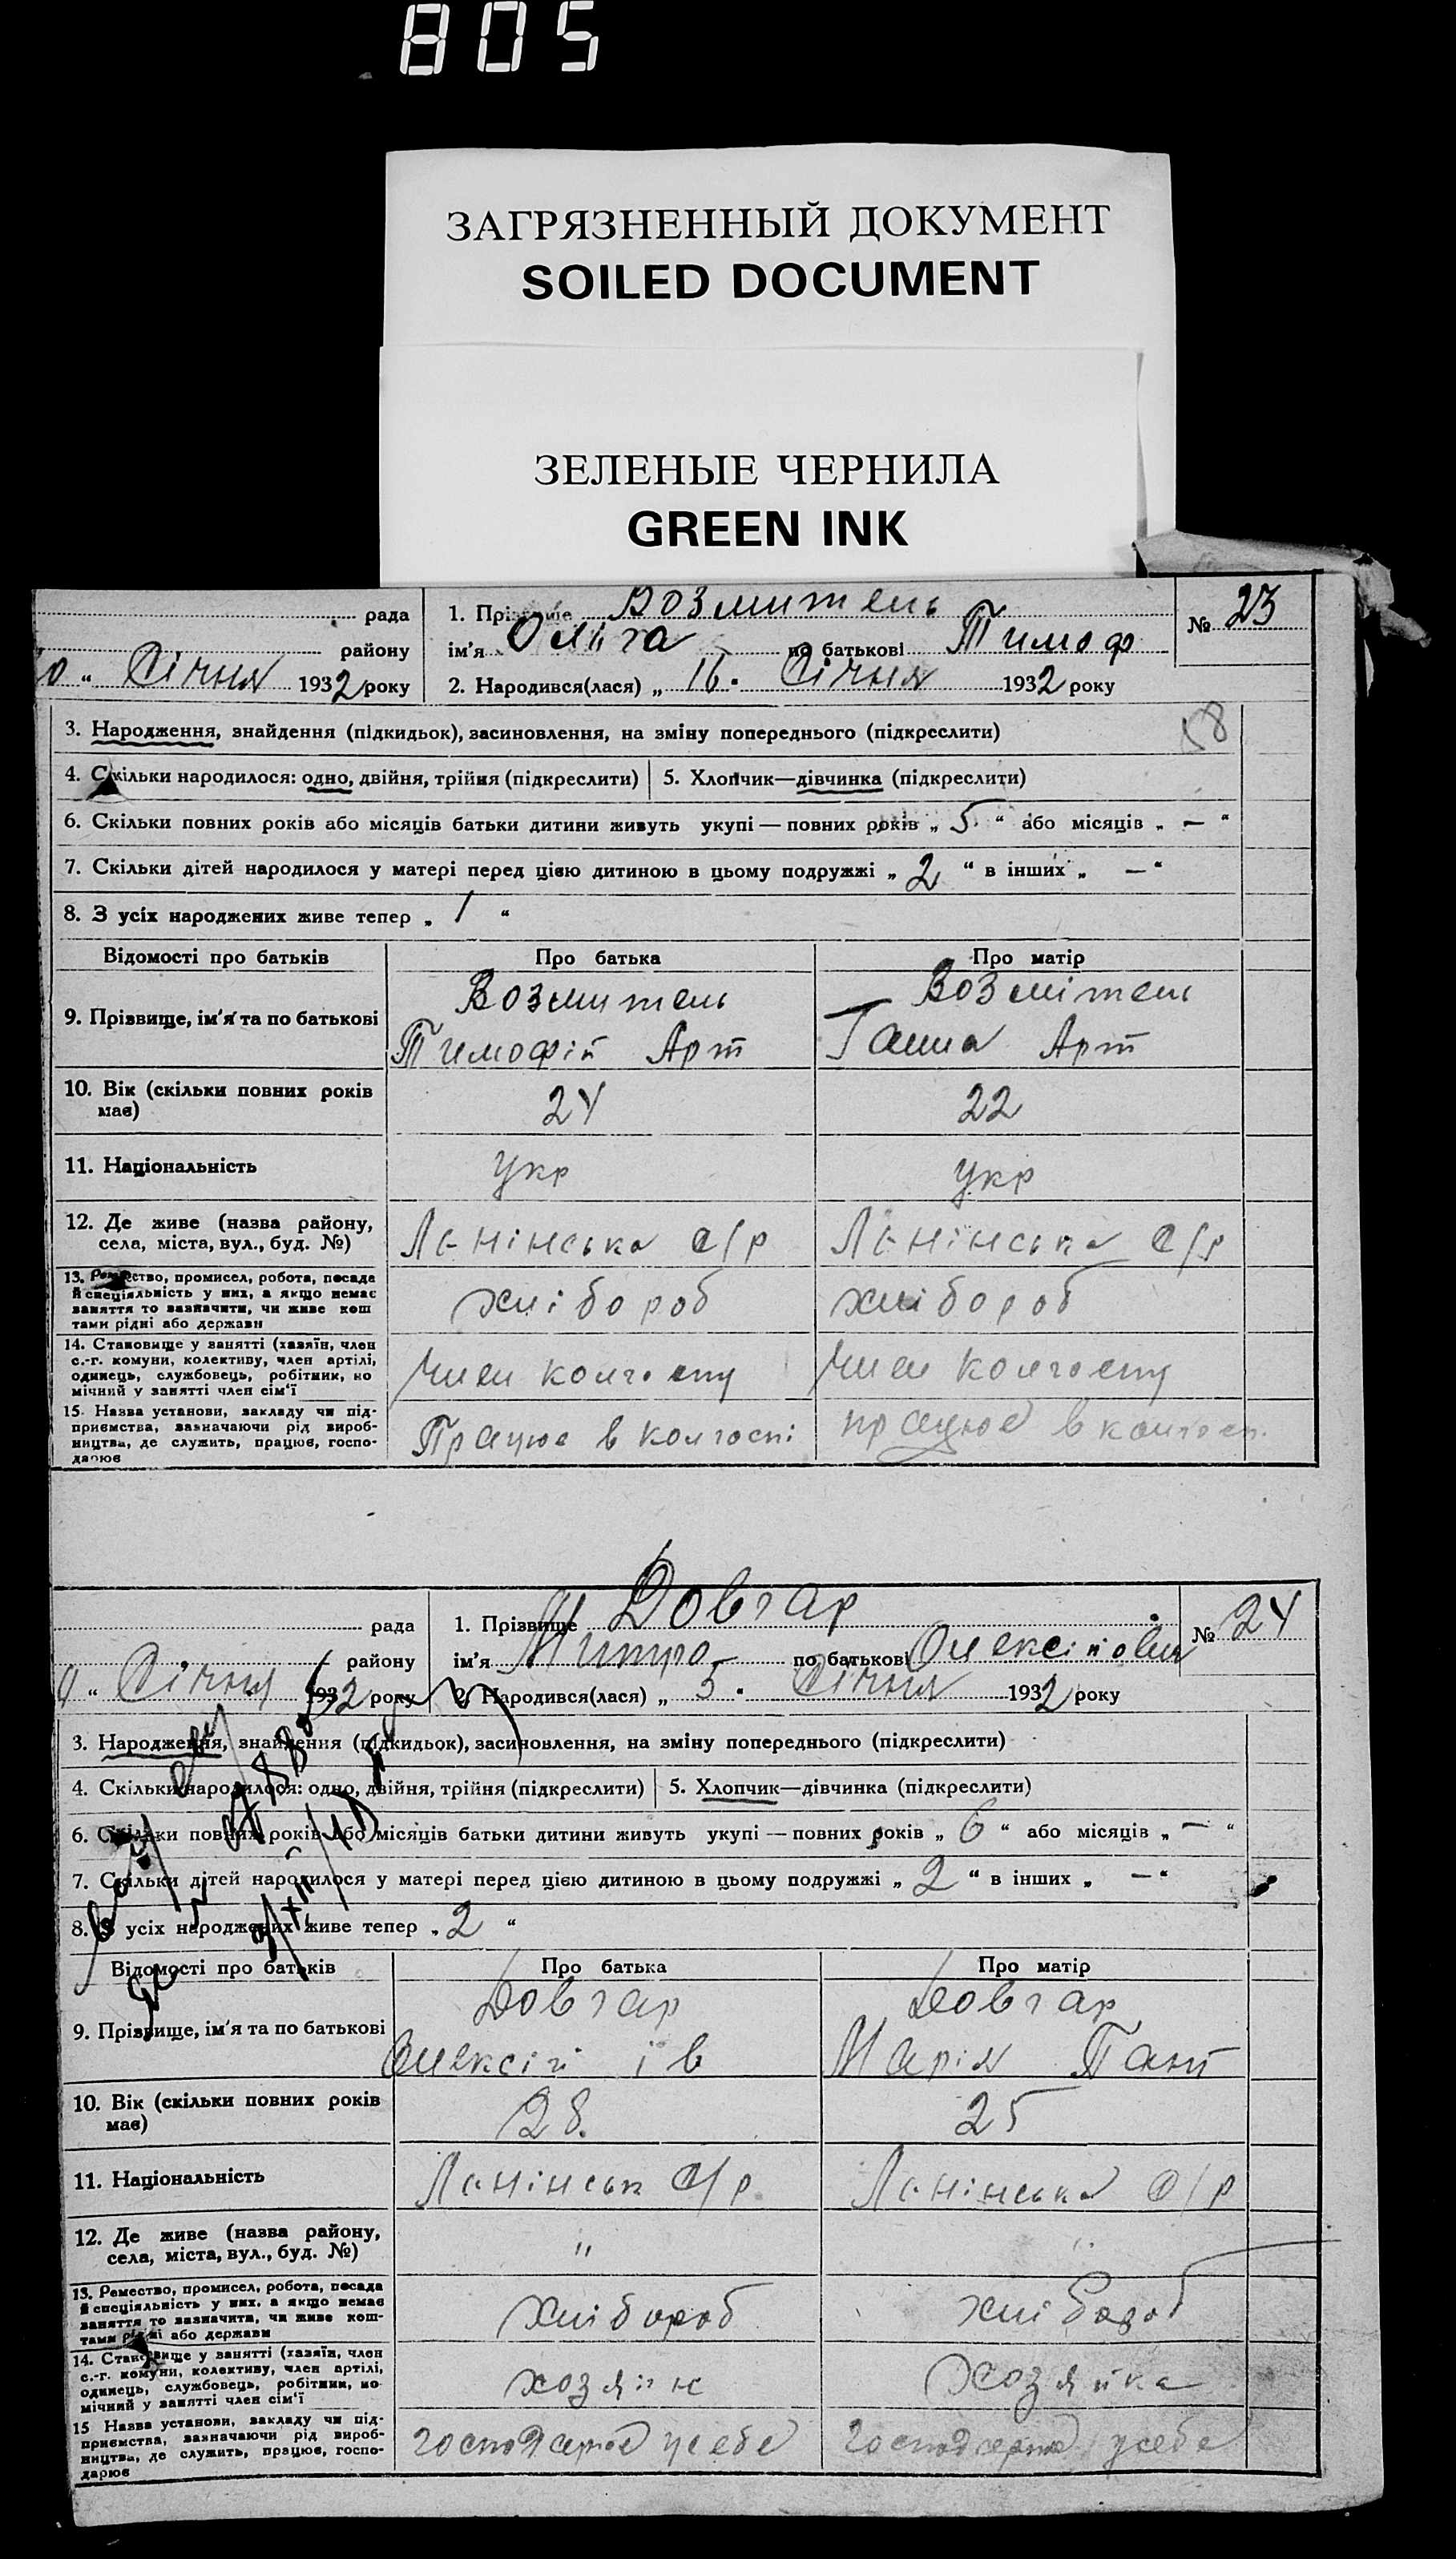 805
ЗАГРЯЗНЕННЫЙ ДОКУМЕНТ
SOILED DOCUMENT
ЗЕЛЕНЫЕ ЧЕРНИЛА
GREEN INK
рада
району
0 " Січня 1932 року
1. Прізвище Возмитель
ім'я Ольга по батькові Тимоф
2. Народився(лася) „ 16. Січня 1932 року
№ 23
3. Народження, знайдення (підкидьок), засиновлення, на зміну попереднього (підкреслити)
58
4. Скільки народилося: одно, двійня, трійня (підкреслити) 5. Хлопчик—дівчинка (підкреслити)
6. Скільки повних років або місяців батьки дитини живуть укупі — повних років „ 5 " або місяців „ — "
7. Скільки дітей народилося у матері перед цією дитиною в цьому подружжі „ 2 " в інших „ — "
8. З усіх народжених живе тепер „ 1 "
Відомості про батьків Про батька Про матір
9. Прізвище, ім'я та по батькові
Возмитель
Тимофій Арт
Возмітель
Ганна Арт
10. Вік (скільки повних років
має)
24
22
11. Національність
укр
укр
12. Де живе (назва району,
села, міста, вул., буд. №)
Ленінська с/р
Ленінська с/р
13. Ремество, промисел, робота, посада
й спеціяльність у них, а якщо немає
заняття то зазначити, чи живе кош
тами рідні або держави
хлібороб
хлібороб
14. Становище у занятті (хазяїн, член
с.-г. комуни, колективу, член артілі,
одинець, службовець, робітник, по
мічний у занятті член сім'ї
член колгоспу
член колгоспу
15. Назва установи, закладу чи під-
приємства, зазначаючи рід вироб-
ництва, де служить, працює, госпо-
дарює
Працює в колгоспі
працює в колгосп.
рада
району
0 " Січня 1932 року
1. Прізвище Довгар
ім'я Митро по батькові Олексійович
2. Народився(лася) „ 5. Січня 1932 року
№ 24
3. Народження, знайдення (підкидьок), засиновлення, на зміну попереднього (підкреслити)
4. Скільки народилося: одно, двійня, трійня (підкреслити) 5. Хлопчик—дівчинка (підкреслити)
6. Скільки повних років або місяців батьки дитини живуть укупі — повних років „ 6 " або місяців „ — "
7. Скільки дітей народилося у матері перед цією дитиною в цьому подружжі „ 2 " в інших „ — "
8. З усіх народжених живе тепер „ 2 "
Відомості про батьків Про батька Про матір
9. Прізвище, ім'я та по батькові
Довгар
Олексій ів
Довгар
Марія Пант
10. Вік (скільки повних років
має)
28.
25
11. Національність
Ленінськ с/р.
Ленінська с/р
12. Де живе (назва району,
села, міста, вул., буд. №)
"
"
13. Ремество, промисел, робота, посада
й спеціяльність у них, а якщо немає
заняття то зазначити, чи живе кош-
тами рідні або держави
хлібороб
хлібороб
14. Становище у занятті (хазяїн, член
с.-г. комуни, колективу, член артілі,
одинець, службовець, робітник, по-
мічний у занятті член сім'ї
хозяін
хозяйка
15 Назва установи, закладу чи під-
приємства, зазначаючи рід вироб-
ництва, де служить, працює, госпо-
дарює
господарює усебе
господарює усебе